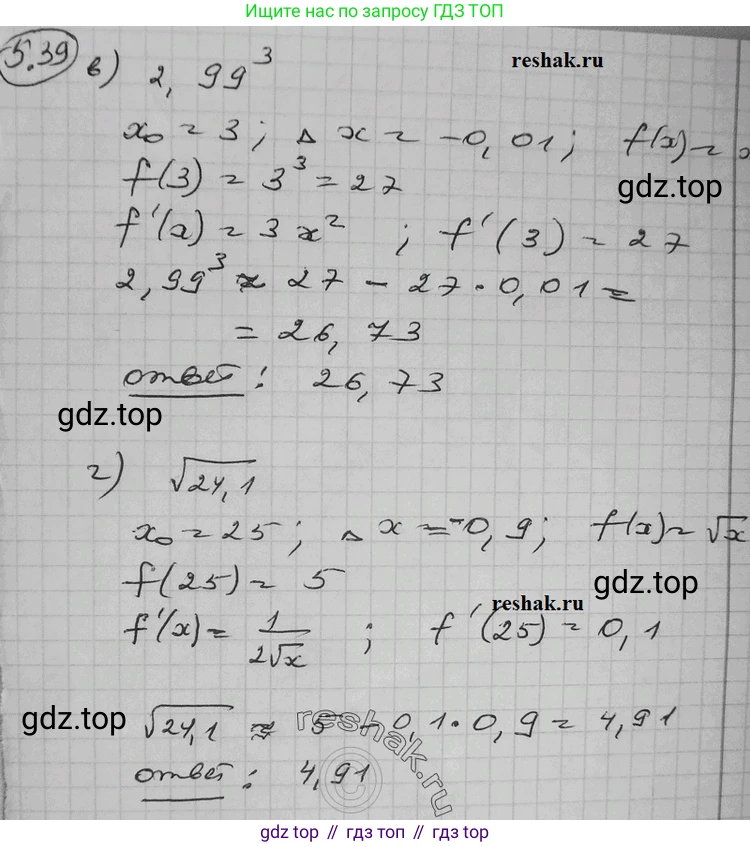 Ищите нас по запросу ГДЗ ТОП
5.39 в) 2,99³
reshak.ru
x₀ = 3; Δx = -0,01; f(x) =
f(3) = 3³ = 27
gdz.top
f'(x) = 3x² ; f'(3) = 27
2,99³ ≈ 27 - 27·0,01 =
= 26,73
ответ: 26,73
gdz.top
г) √24,1
x₀ = 25; Δx = -0,9; f(x) = √x
f(25) = 5
gdz.top
reshak.ru
f'(x) = 1/2√x ; f'(25) = 0,1
gdz.top
√24,1 ≈ 5 - 0,1·0,9 = 4,91
reshak.ru
ответ: 4,91
gdz top // гдз топ // gdz top